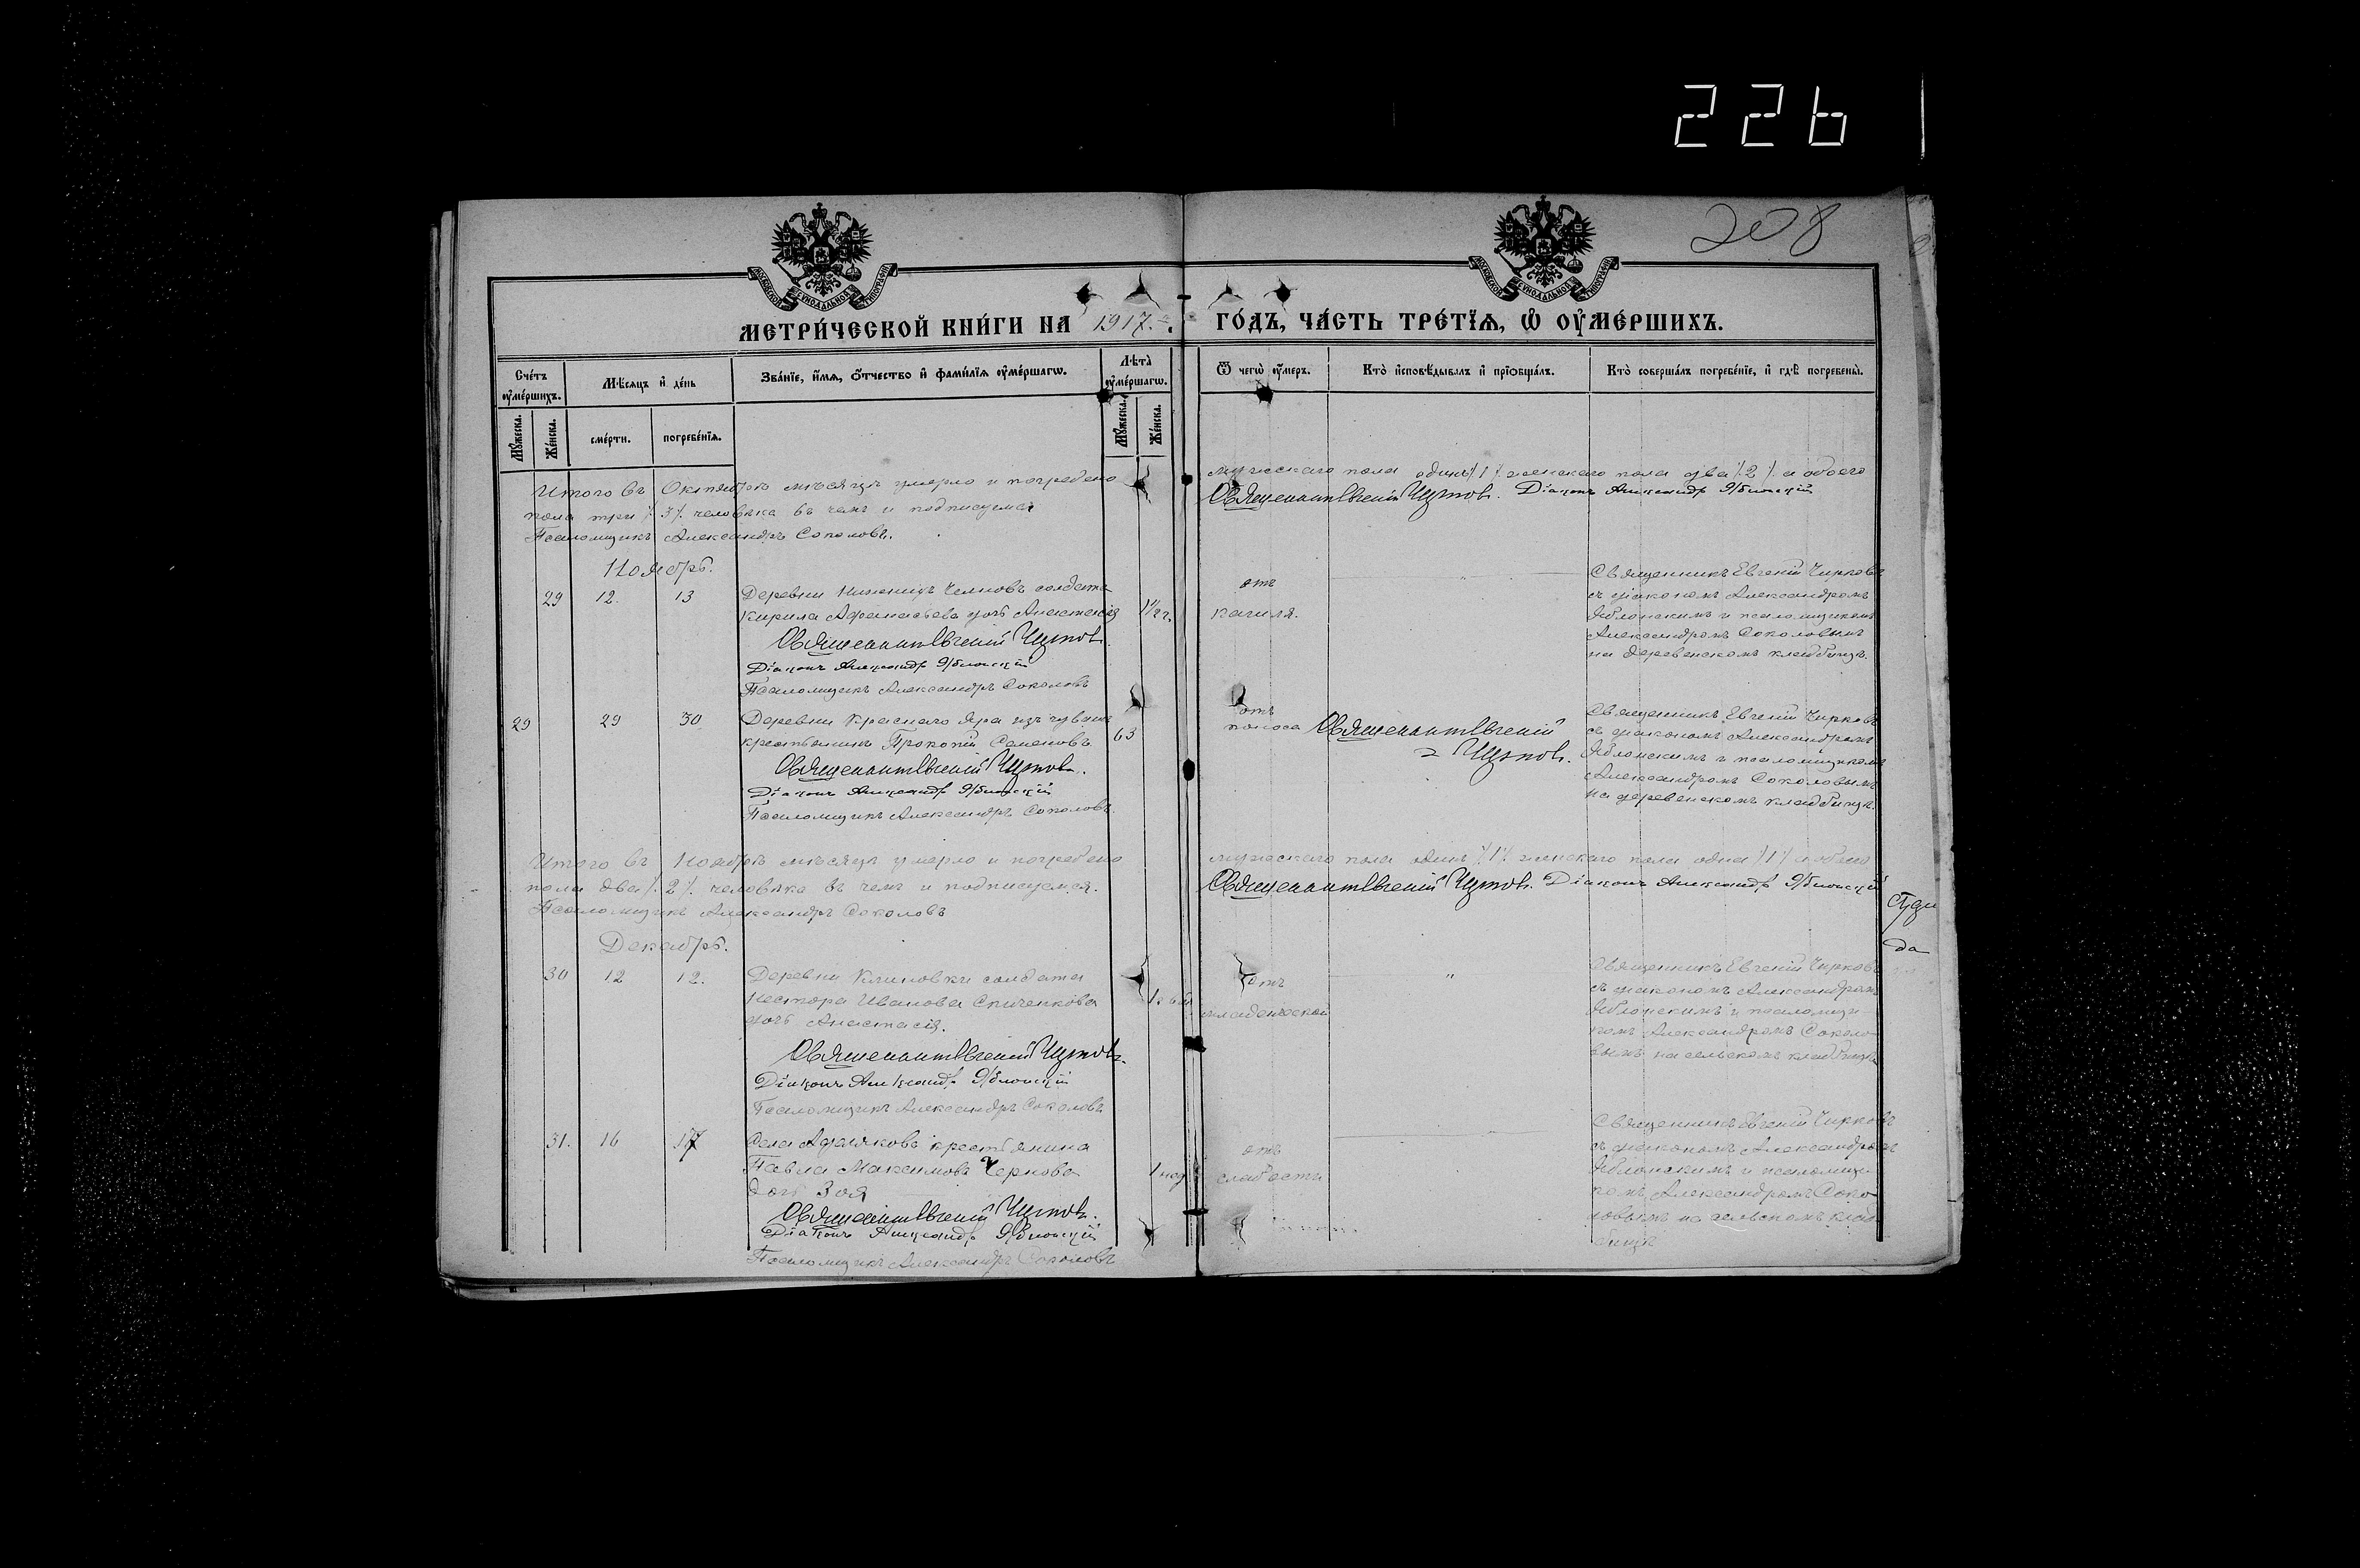 226
208
МЕТРИ́ЧЕСКОЙ КНИ́ГИ НА 1917 ГО́ДЪ, ЧА́СТЬ ТРЕ́ТЇѦ, Ѡ҆ ОУ҆МЕ́РШИХЪ.
Сче́тъ оу҆ме́ршихъ.
Мѣ́сѧцъ и҆ де́нь
Зва́нїе, и҆́мѧ, ѻ҆́тчество и҆ фами́лїѧ оу҆ме́ршагѡ.
Лѣ́та оу҆ме́ршагѡ.
Ѿ чегѡ̀ оу҆́меръ.
Кто̀ и҆сповѣ́дывалъ и҆ прїѡбща́лъ.
Кто̀ соверша́лъ погребе́нїе, и҆ гдѣ̀ погребены̀.
Мꙋ́жеска.
Же́нска.
сме́рти.
погребе́нїѧ.
Мꙋ́жеска.
Же́нска.
Итого въ Октябрѣ мѣсяцѣ умерло и погребено мужескаго пола одинъ /1/ женскаго пола два /2/ а обоего
пола три /3/. человѣка въ чемъ и подписуемся Священникъ Евгеній Чирковъ. Діаконъ Александръ Яблонскій
Псаломщикъ Александръ Соколовъ.
Ноябрь.
29 12. 13
Деревни Нижнихъ Челновъ солдата
Кирила Афанасьева дочь Анастасія
Священникъ Евгеній Чирковъ
Діаконъ Александръ Яблонскій
Псаломщикъ Александръ Соколовъ
отъ
кашля.
Священникъ Евгеній Чирковъ
съ діакономъ Александромъ
Яблонскимъ и псаломщикомъ
Александромъ Соколовымъ
на деревенскомъ кладбищѣ.
29 29 30
Деревни Краснаго Яра изъ чувашъ
крестьянинъ Прокопій Семеновъ
63
Священникъ Евгеній Чирковъ.
Діаконъ Александръ Яблонскій
Псаломщикъ Александръ Соколовъ
отъ
поноса
Священникъ Евгеній
Чирковъ.
Священникъ Евгеній Чирковъ
съ діакономъ Александромъ
Яблонскимъ и псаломщикомъ
Александромъ Соколовымъ
на деревенскомъ кладбищѣ.
Итого въ Ноябрѣ мѣсяцѣ умерло и погребено мужескаго пола одинъ /1/ женскаго пола одна /1/ и обоего
пола два /2/. человѣка въ чемъ и подписуемся. Священникъ Евгеній Чирковъ. Діаконъ Александръ Яблонскій
Псаломщикъ Александръ Соколовъ
Декабрь.
30 12 12.
Деревни Климовки солдата
Нестора Иванова Спиченкова
дочь Анастасія.
Священникъ Евгеній Чирковъ.
Діаконъ Александръ Яблонскій
Псаломщикъ Александръ Соколовъ
отъ
младенческой
Священникъ Евгеній Чирковъ
съ діакономъ Александромъ
Яблонскимъ и псаломщи-
комъ Александромъ Соколо-
вымъ на сельскомъ кладбищѣ
да
31. 16 17
Села крестьянина
Павла Максимова Чернова
дочь Зоя
1 нед
Священникъ Евгеній Чирковъ.
Діаконъ Александръ Яблонскій
Псаломщикъ Александръ Соколовъ
отъ
слабости
Священникъ Евгеній Чирковъ
съ діакономъ Александромъ
Яблонскимъ и псаломщи-
комъ Александромъ Соко-
ловымъ на сельскомъ клад-
бищѣ